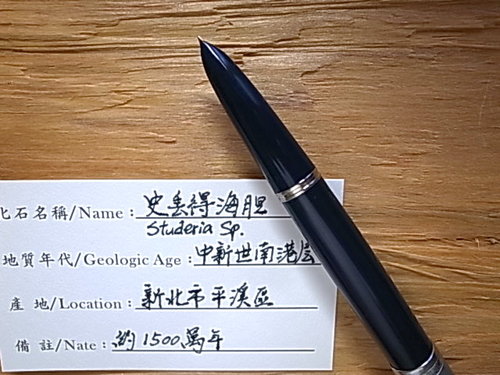 化石名稱/Name：史丟得海胆
Studeria Sp.
地質年代/Geologic Age：中新世南港层
產 地/Location：新北市平溪區
備 註/Nate：約1500萬年